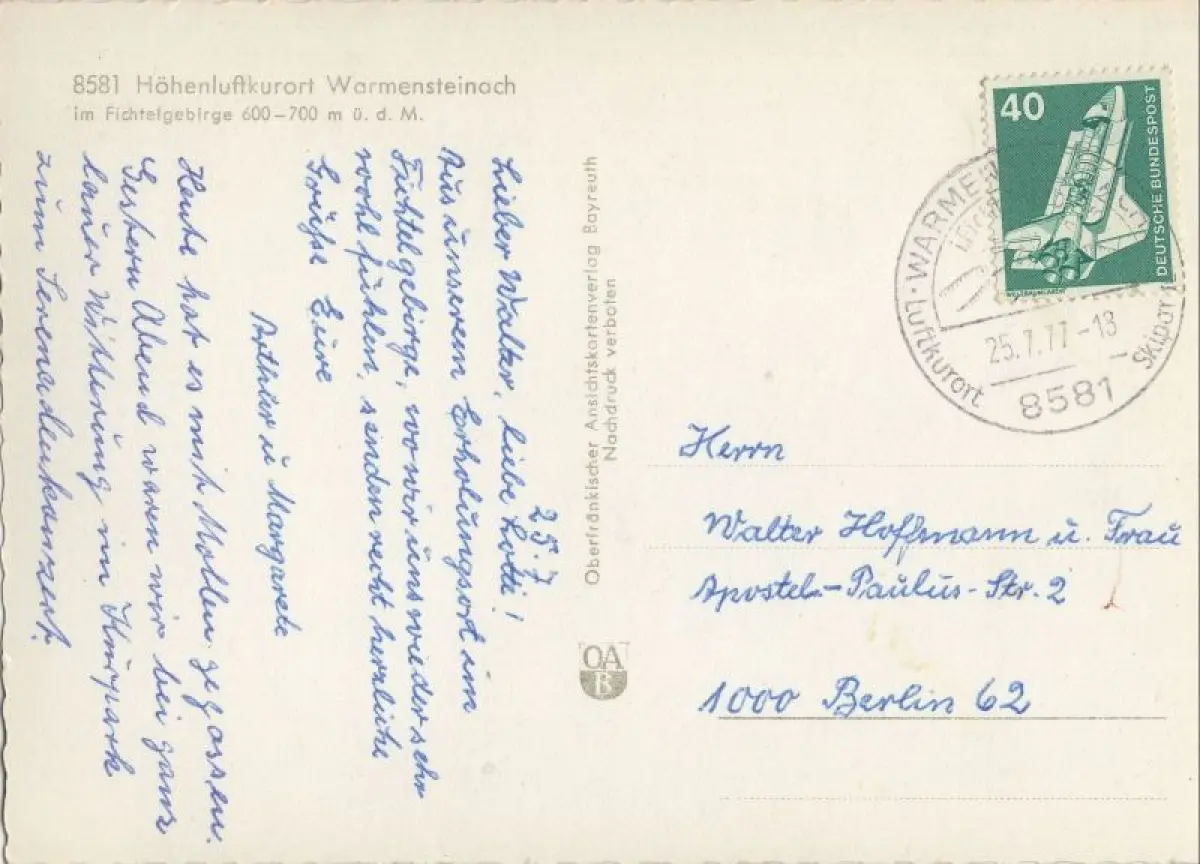 8581 Höhenluftkurort Warmensteinach
im Fichtelgebirge 600–700 m ü. d. M.
25.7
Lieber Walter, liebe Lotti!
Aus unserem Erholungsort im
Fichtelgebirge, wo wir uns wieder sehr
wohl fühlen, senden recht herzliche
Grüße Eure
Arthur u Margarete
Heute hat es mit Mollen gegossen.
Gestern Abend waren wir bei ganz
lauer Witterung im Kurpark
zum Serenadenkonzert.
Oberfränkischer Ansichtskartenverlag Bayreuth
Nachdruck verboten
OA
B
40
DEUTSCHE BUNDESPOST
Luftkurort · WARME
25.7.77-18
8581
Herrn
Walter Hoffmann u. Frau
Apostel-Paulus-Str. 2
1000 Berlin 62